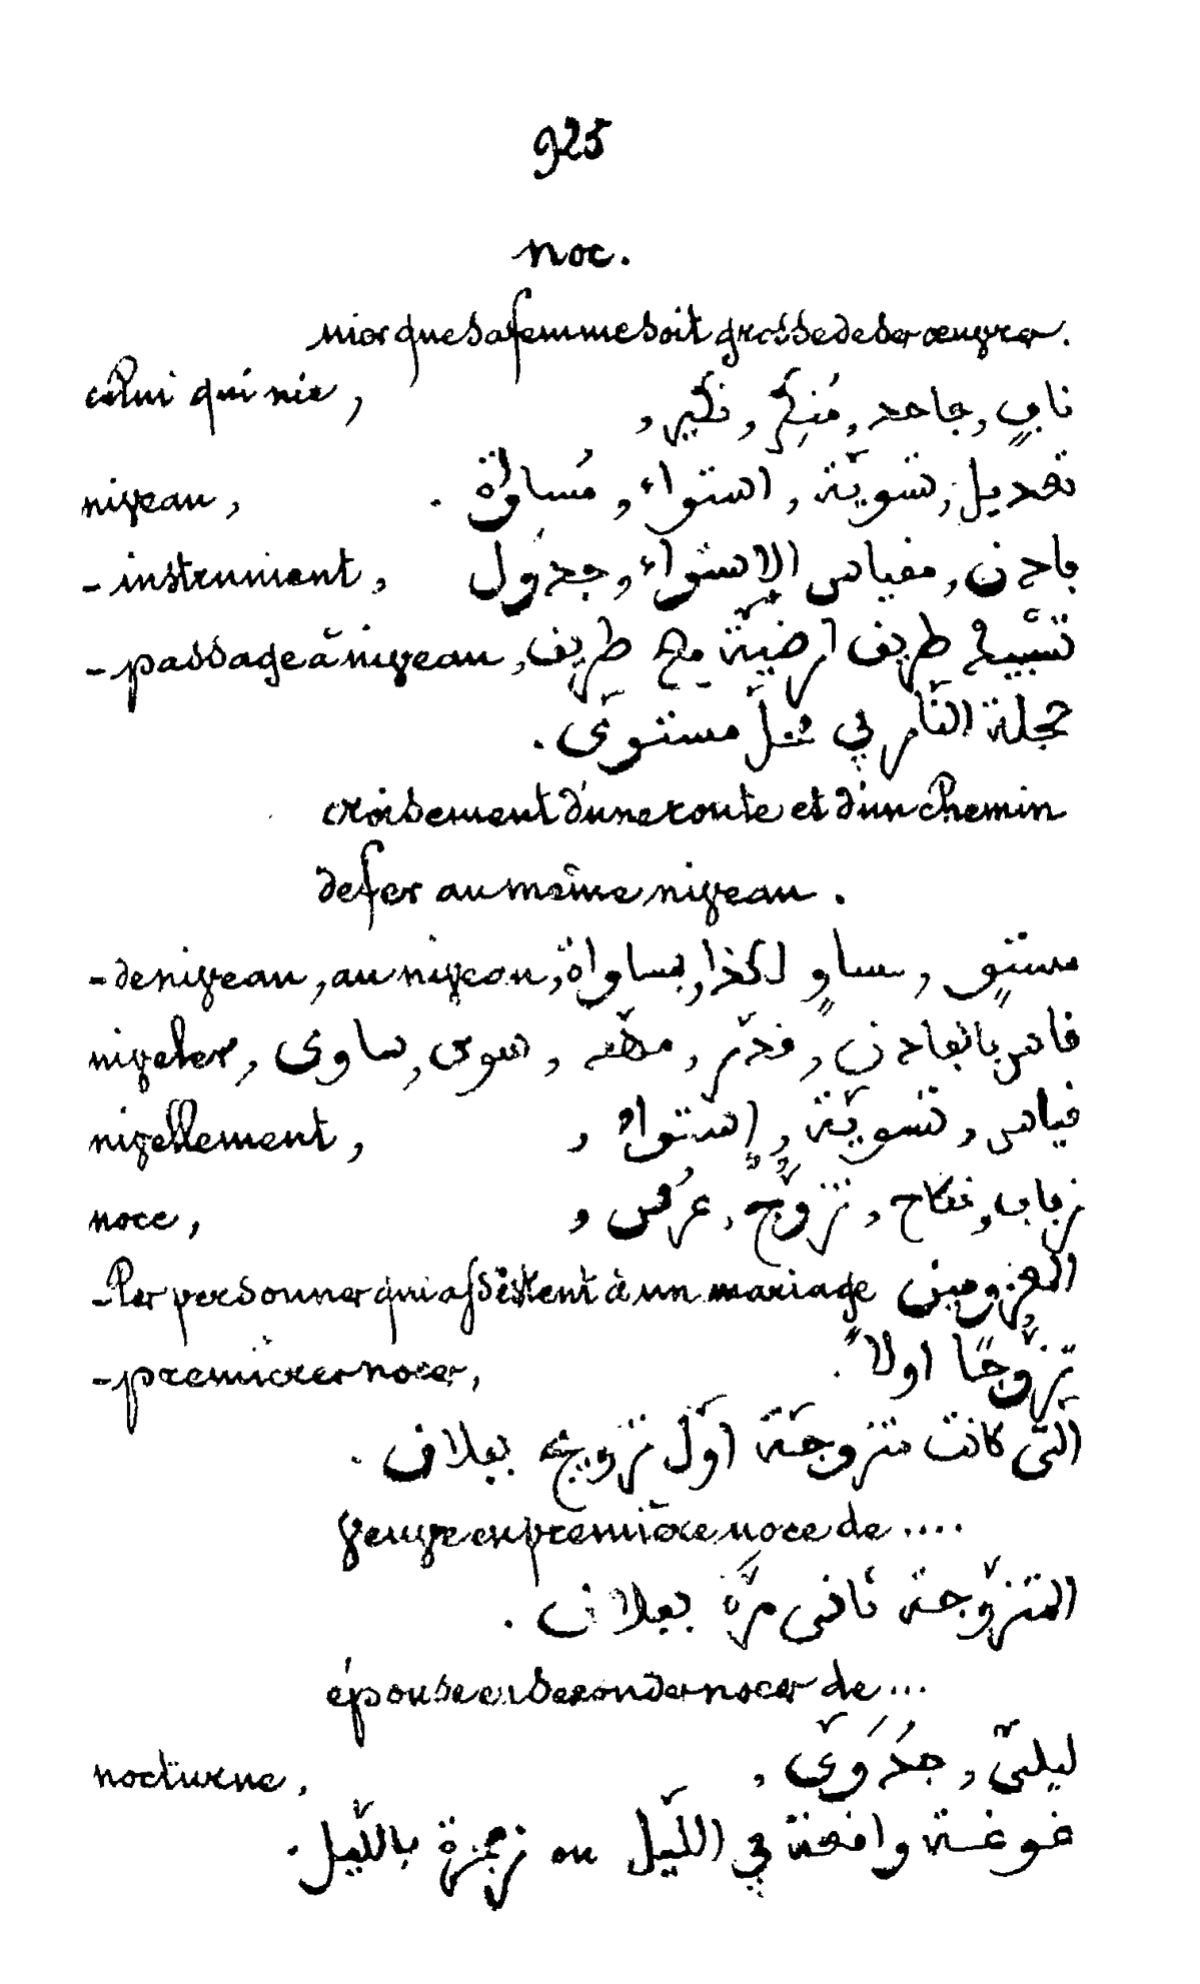 925
noc.
nier que sa femme soit grosse de ses œuvres.
celui qui nie, نابٍ, جاحد, مُنكِر, نكير,
niveau, تعديل, تسويّة, استواء, مُساواة.
- instrument, مفياس الاستواء, جدول
- passage à niveau, طريف ارضيّة مع طريف
عجلة النّار في محلّ مستوى.
croisement d'une route et d'un chemin
de fer au même niveau.
- de niveau, au niveau, مستوٍ, مساوٍ لكذا, بمساواة
niveler, فاس, فدّر, مهّد, سوى, ساوى
nivellement, فياس, تسويّة, إستواء,
noce, زباب, نكاح, تزوّج, عرُس,
- les personnes qui assistent à un mariage المعزومين
- premières noces, تزوّجًا اولاً.
الّتى كانت متزوجّة اوّل تزويج بعلان.
veuve en première noce de ....
المتزوّجة ثانى مرّة بعلان.
épouse en secondes noces de ...
nocturne, ليلىّ,
غوغة وافعة في اللّيل ou زمجرة باللّيل.